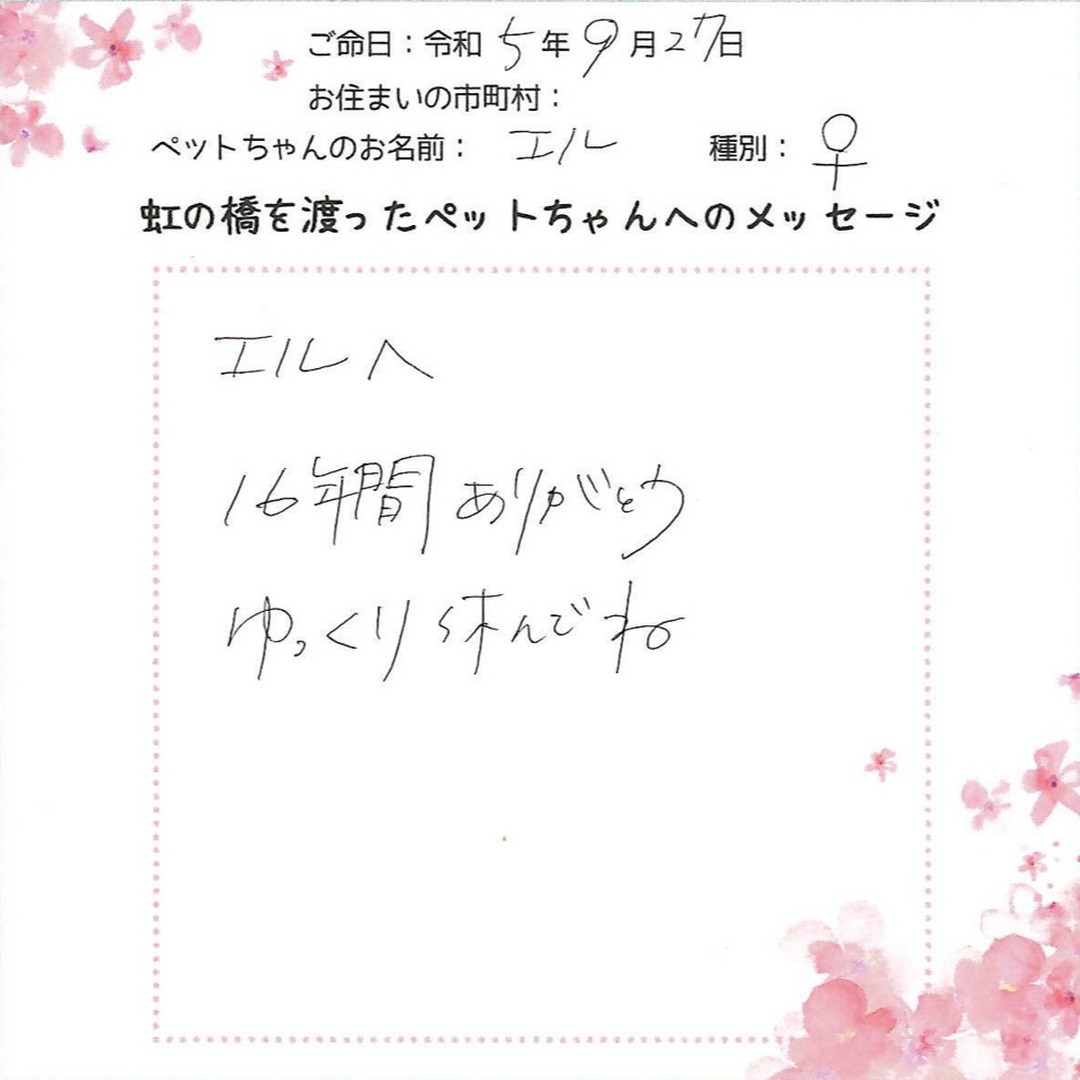 ご命日：令和 5年 9月27日
お住まいの市町村：
ペットちゃんのお名前： エル 種別： ♀
虹の橋を渡ったペットちゃんへのメッセージ
エルへ
16年間ありがとう
ゆっくり休んでね